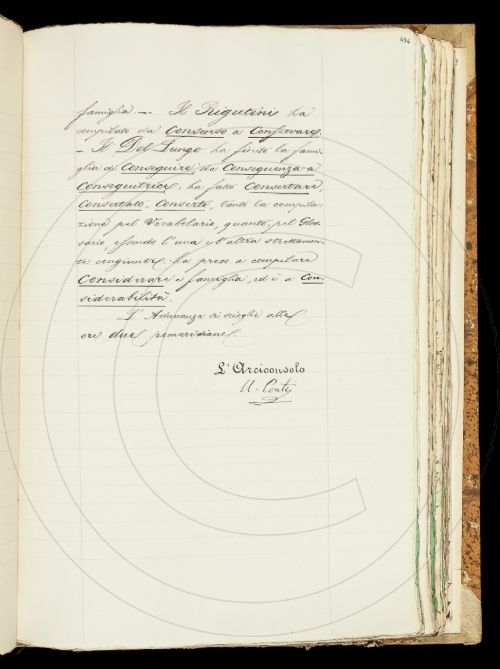 434
famiglia — Il Rigutini ha
compilato da Consenso a Conservare.
— Il Del Lungo ha finito la fami-
glia di Conseguire, da Conseguenza a
Conseguitrice, ha fatto Consertare,
Consertato, Conserto, tanto la compila-
zione pel Vocabolario, quanto pel Glos-
sario essendo l'una e l'altra strettamen-
te congiunte; ha preso a compilare
Considerare e famiglia, ed è a Con-
siderabilità.
L'Adunanza si scioglie alle
ore due pomeridiane.
L'Arciconsolo
A. Conti